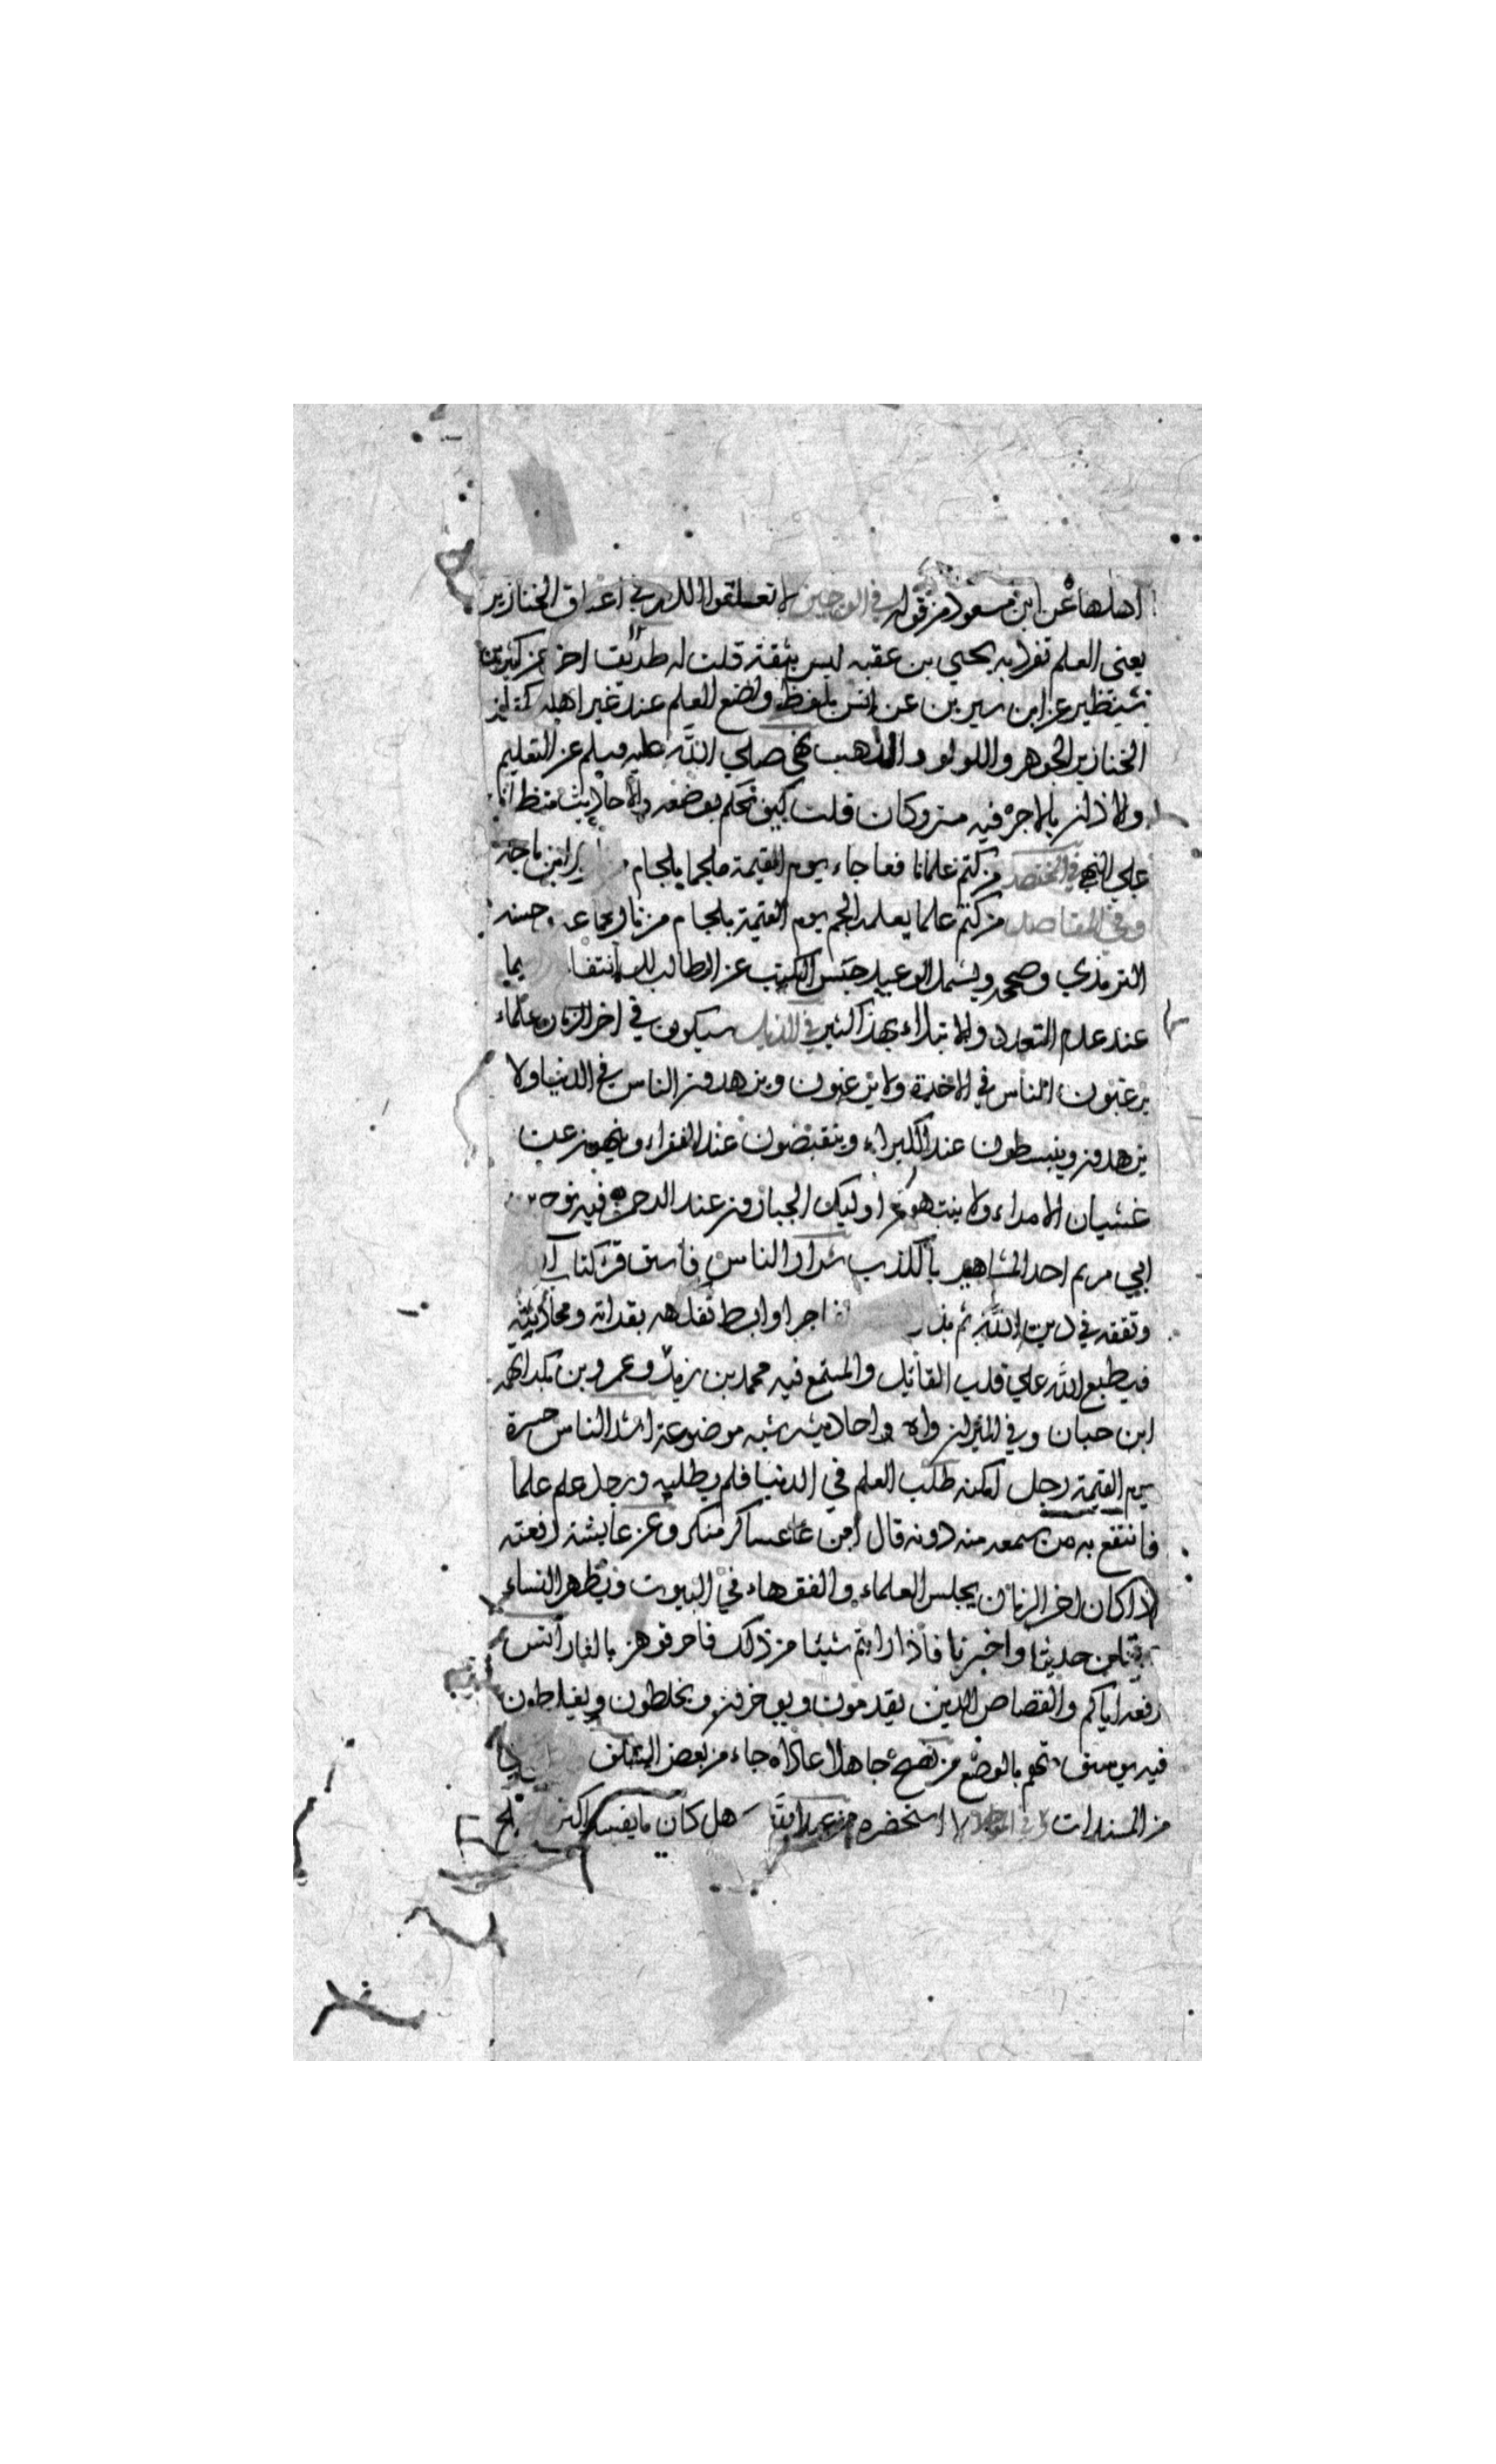 اهلها عن ابن مسعود من قوله في الوجيز لا تعلقوا الدر في اعناق الخنازير
يعني العلم تفرد به يحيي بن عقبه ليس بثقة قلت له طريق اخر عن كثير بن
شنظير عن ابن سيرين عن انس بلفظ وضع العلم عند غير اهله كمقلد
الخنازير الجوهر واللولو والذهب نهي صلي الله عليه وسلم عن التعليم
والاذان بالاجر فيه متروكان قلت كيف نحكم بوضعه والاحاديث
علي النهي في المختصر من كتم علما نافعا جاء يوم القيمة ملجما بلجام ابن ماجه
وفي المقاصد من كتم علما يعلمه الجم يوم القيمة بلجام من نار لجماعه وحسنه
الترمذي وصححه ويشمل الوعيد حبس الكتب عن الطالب للانتفاع
عند عدم التعدد والابتلاء بهذا كثير في الذيل سيكون في اخر الزمان علماء
يرغبون الناس في الاخرة ولا يرغبون ويزهدون الناس في الدنيا ولا
يزهدون وينبسطون عند الكبراء وينقبضون عند الفقراء وينهون عن
غشيان الامراء ولا ينتهون اوليك الجبارون عند الرحمن فيه نوح بن
ابي مريم احد المشاهير بالكذب شرار الناس فاسق قرا كتاب
وتفقه في دين الله ثم بذل فاجرا وابسط تفكه بقراته ومحادثته
فيطبع الله علي قلب القائل والمستمع فيه محمد بن يزيد وعمرو بن بكر اتهمه
ابن حبان وفي الميزان واه واحاديثه شبه موضوعة اشد الناس حسرة
يوم القيمة رجل امكنه طلب العلم في الدنيا فلم يطلبه ورجل علم علما
فانتفع به من سمعه منه دونه قال ابن عساكر منكر وعن عايشة رفعته
اذا كان اخر الزمان يجلس العلماء والفقهاء في البيوت ويظهر النساء
حدثنا واخبرنا فاذا رايتم شيئا من ذلك فاحرقوهن بالنار انس
رفعه اياكم والقصاص الذين يقدمون ويوخرون ويخلطون ويغلطون
فيه يوسف متهم بالوضع من نصح جاهلا عاداه جاء من بعض السلف
من المسندات لا استحضره هل كان ما يفسد اكثر